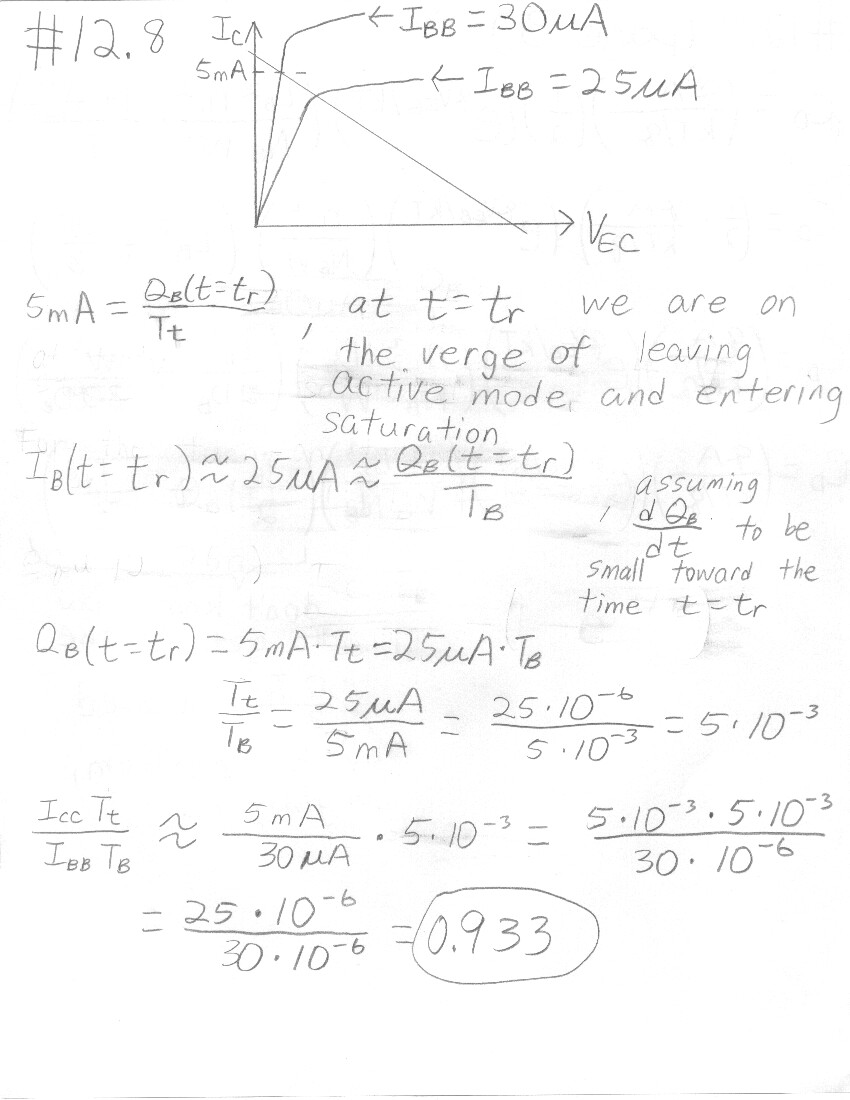 #12.8
I_C
← I_BB = 30μA
5mA
← I_BB = 25μA
V_EC
5mA = Q_B(t=t_r) / τ_t , at t=t_r we are on
the verge of leaving
active mode, and entering
saturation
I_B(t=t_r) ≈ 25μA ≈ Q_B(t=t_r) / τ_B , assuming
dQ_B/dt to be
small toward the
time t=t_r
Q_B(t=t_r) = 5mA·τ_t = 25μA·τ_B
τ_t/τ_B = 25μA/5mA = 25·10^-6 / 5·10^-3 = 5·10^-3
I_CC τ_t / I_BB τ_B ≈ 5mA/30μA · 5·10^-3 = 5·10^-3·5·10^-3 / 30·10^-6
= 25·10^-6 / 30·10^-6 = 0.933